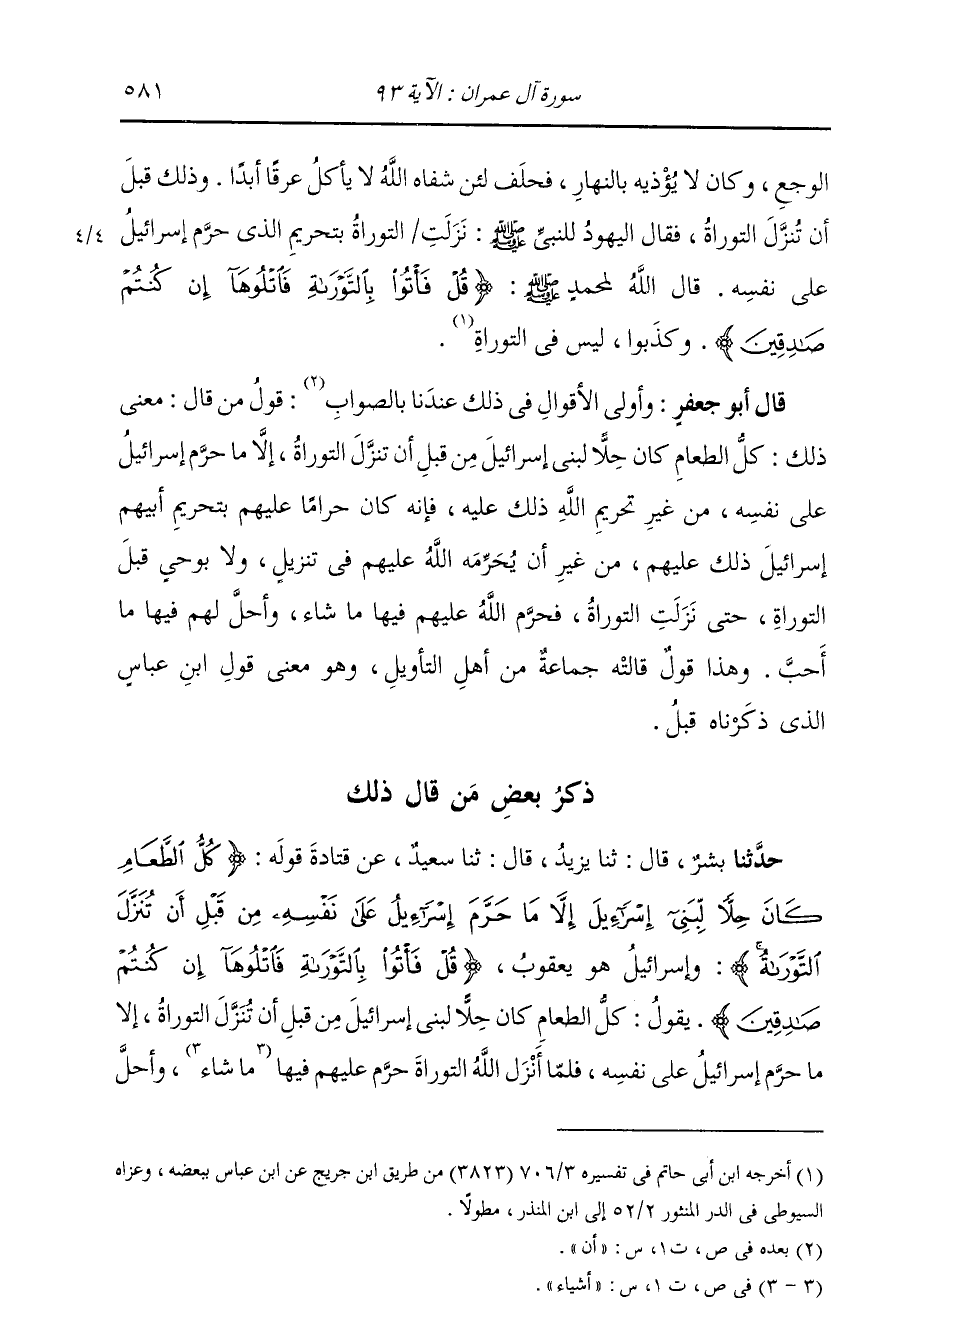 سورة آل عمران : الآية ٩٣ ٥٨١
الوجعِ ، وكان لا يُؤْذيه بالنهارِ ، فحلَف لئن شفاه اللَّهُ لا يأكلُ عرقًا أبدًا . وذلك قبلَ
أن تُنزَّلَ التوراةُ ، فقال اليهودُ للنبيِّ ﷺ : نَزَلَتِ/ التوراةُ بتحريمِ الذى حرَّم إسرائيلُ ٤/٤
على نفسِه . قال اللَّهُ لمحمدٍ ﷺ : ﴿ قُلْ فَأْتُوا۟ بِٱلتَّوْرَىٰةِ فَٱتْلُوهَآ إِن كُنتُمْ
صَـٰدِقِينَ ﴾ . وكذَبوا ، ليس فى التوراةِ(١) .
قال أبو جعفرٍ : وأولى الأقوالِ فى ذلك عندَنا بالصوابِ(٢) : قولُ من قال : معنى
ذلك : كلُّ الطعامِ كان حِلًّا لبنى إسرائيلَ مِن قبلِ أن تنزَّلَ التوراةُ ، إلَّا ما حرَّم إسرائيلُ
على نفسِه ، من غيرِ تحريمِ اللَّهِ ذلك عليه ، فإنه كان حرامًا عليهم بتحريمِ أبيهم
إسرائيلَ ذلك عليهم ، من غيرِ أن يُحَرِّمَه اللَّهُ عليهم فى تنزيلٍ ، ولا بوحيٍ قبلَ
التوراةِ ، حتى نَزَلَتِ التوراةُ ، فحرَّم اللَّهُ عليهم فيها ما شاء ، وأحلَّ لهم فيها ما
أَحبَّ . وهذا قولٌ قالتْه جماعةٌ من أهلِ التأويلِ ، وهو معنى قولِ ابنِ عباسٍ
الذى ذكَرْناه قبلُ .
ذكرُ بعضِ مَن قال ذلك
حدَّثنا بشرٌ ، قال : ثنا يزيدُ ، قال : ثنا سعيدٌ ، عن قتادةَ قولَه : ﴿ كُلُّ ٱلطَّعَامِ
كَانَ حِلًّا لِّبَنِىٓ إِسْرَٰٓءِيلَ إِلَّا مَا حَرَّمَ إِسْرَٰٓءِيلُ عَلَىٰ نَفْسِهِۦ مِن قَبْلِ أَن تُنَزَّلَ
ٱلتَّوْرَىٰةُۚ ﴾ : وإسرائيلُ هو يعقوبُ ، ﴿ قُلْ فَأْتُوا۟ بِٱلتَّوْرَىٰةِ فَٱتْلُوهَآ إِن كُنتُمْ
صَـٰدِقِينَ ﴾ . يقولُ : كلُّ الطعامِ كان حِلًّا لبنى إسرائيلَ مِن قبلِ أن تُنَزَّلَ التوراةُ ، إلا
ما حرَّم إسرائيلُ على نفسِه ، فلمّا أَنْزَل اللَّهُ التوراةَ حرَّم عليهم فيها (٣ما شاء٣) ، وأحلَّ
(١) أخرجه ابن أبى حاتم فى تفسيره ٧٠٦/٣ (٣٨٢٣) من طريق ابن جريج عن ابن عباس ببعضه ، وعزاه
السيوطى فى الدر المنثور ٥٢/٢ إلى ابن المنذر ، مطولًا .
(٢) بعده فى ص ، ت١، س : «أن» .
(٣ - ٣) فى ص ، ت ١، س : «أشياء» .